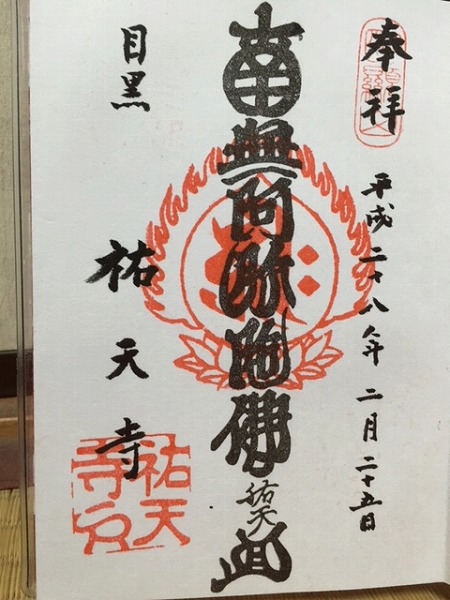 奉拝
平成二十八年二月二十五日
南無阿弥陀佛
祐天
目黒
祐天寺
祐天
寺印